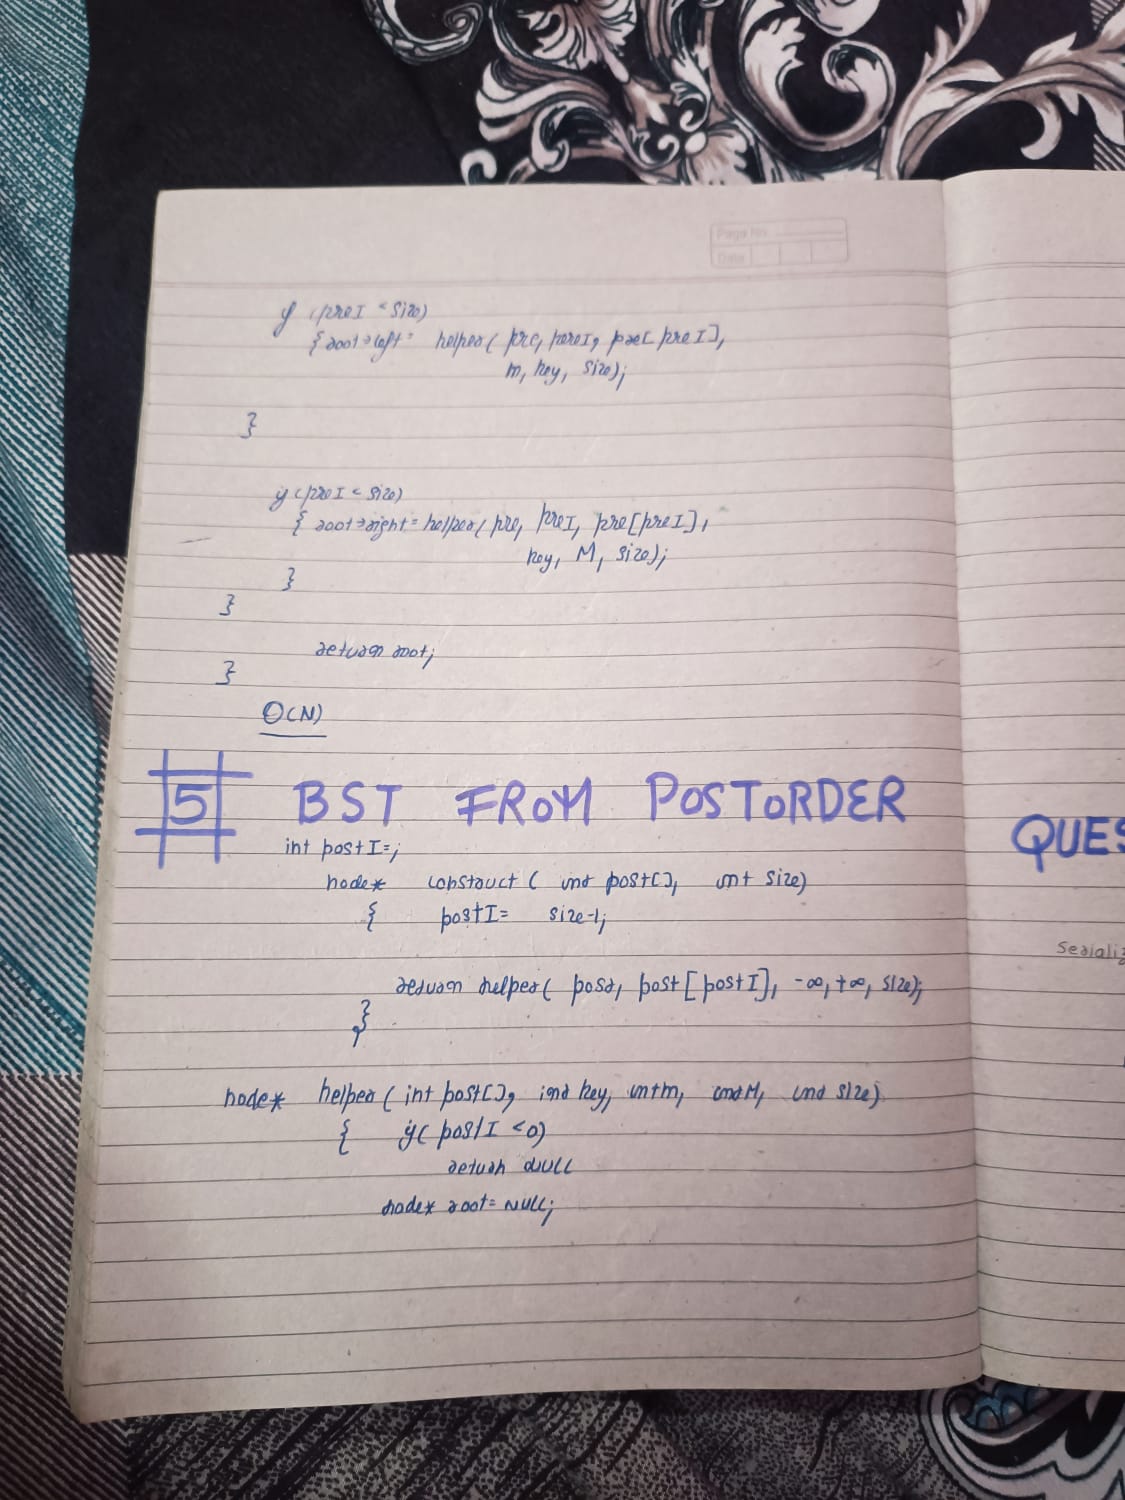 Page No.
Date
if (preI < size)
{ root->left = helper( pre, preI, pre[preI],
m, key, size);
}
if (preI < size)
{ root->right = helper( pre, preI, pre[preI],
key, M, size);
}
}
return root;
}
O(N)
5 BST FROM POSTORDER
int postI=;
node* construct ( int post[], int size)
{ postI= size-1;
return helper( post, post[postI], -∞, +∞, size);
}
node* helper( int post[], int key, int m, int M, int size)
{ if( postI <0)
return NULL
node* root= NULL;
QUES